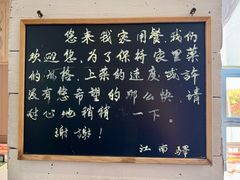 您来我家用餐我们
欢迎您,为了保持家里菜
的风格,上菜的速度或許
没有您希望的那么快,请
耐心地稍稍 一下。
謝謝!
江南驛